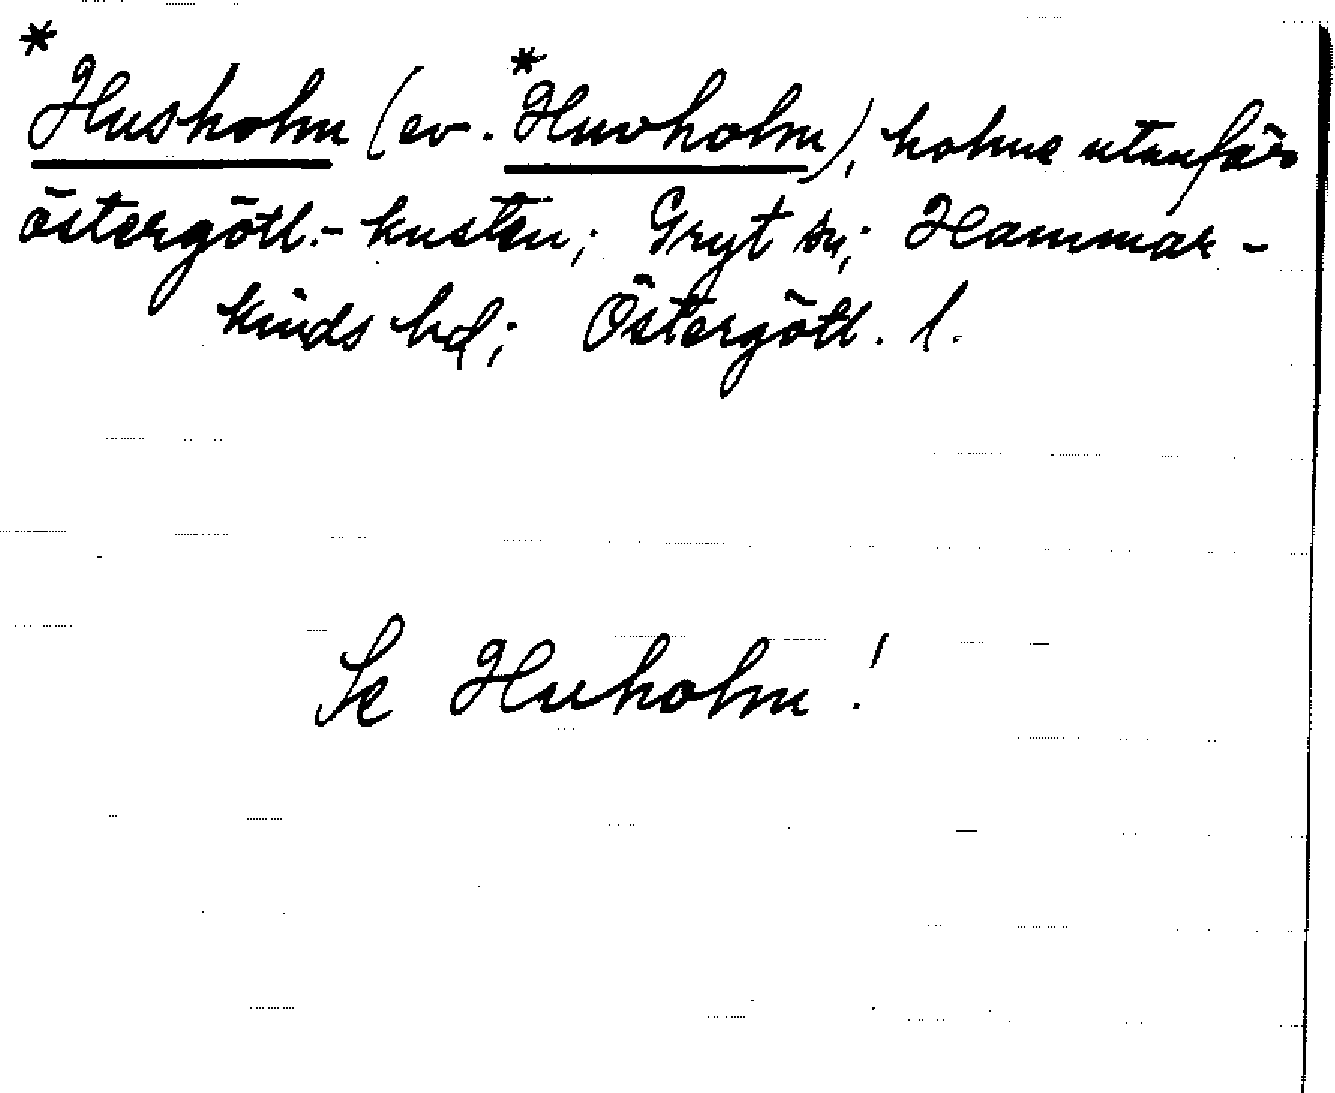 *Husholm (ev. *Huvholm), holme utanför
östergötl.-kusten; Gryt sn; Hammar-
kinds hd; Östergötl. l.
Se Huholm!